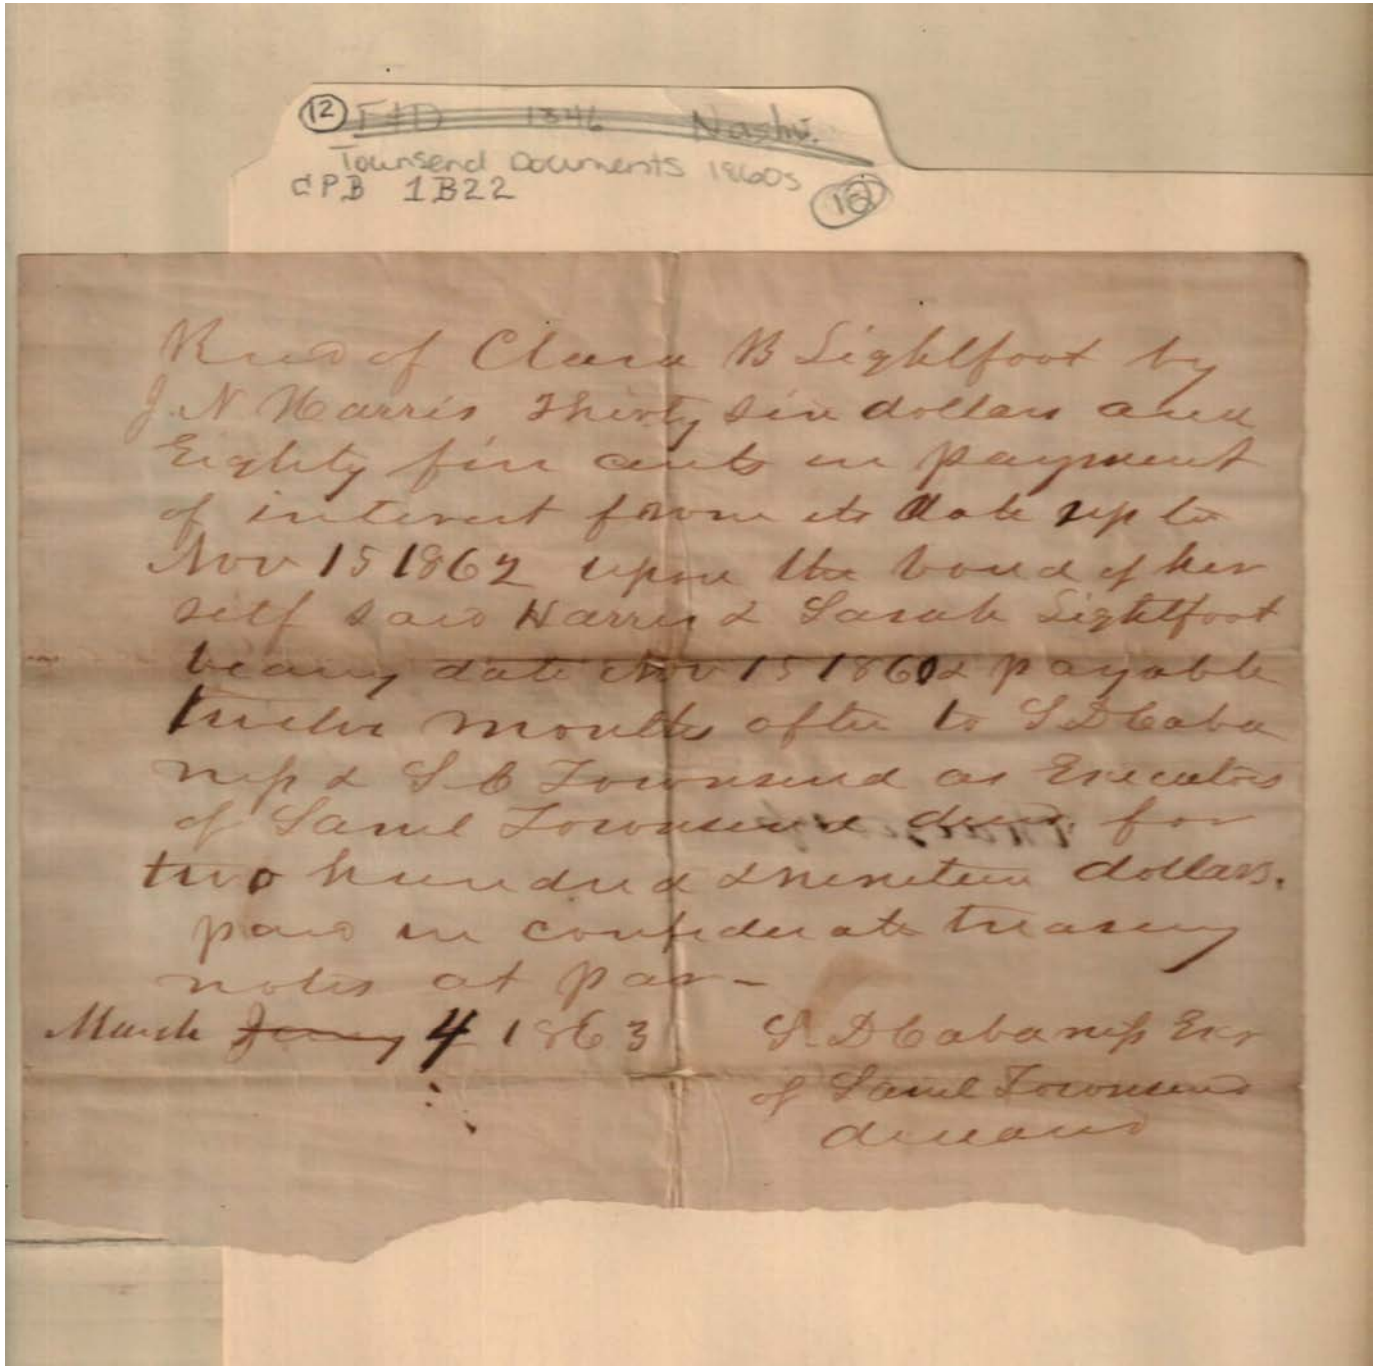 12 F&D 1846 Nashv.
Townsend Documents 1860s
cPB 1B22 12
Recd of Clara B Lightfoot by
J. N Harris Thirty six dollars and
Eighty five cents in payment
of interest from its date up to
Nov 15 1862 upon the bond of her
self said Harris & Sarah Lightfoot
bearing date Nov 15 1860 & payable
twelve months after to S D Caba
niss & S C Townsend as Executors
of Saml Townsend decd for
two hundred & nineteen dollars.
paid in confederate treasury
notes at par -
March Jany 4 1863 S. D Cabaniss Exr
of Saml Townsend
deceased